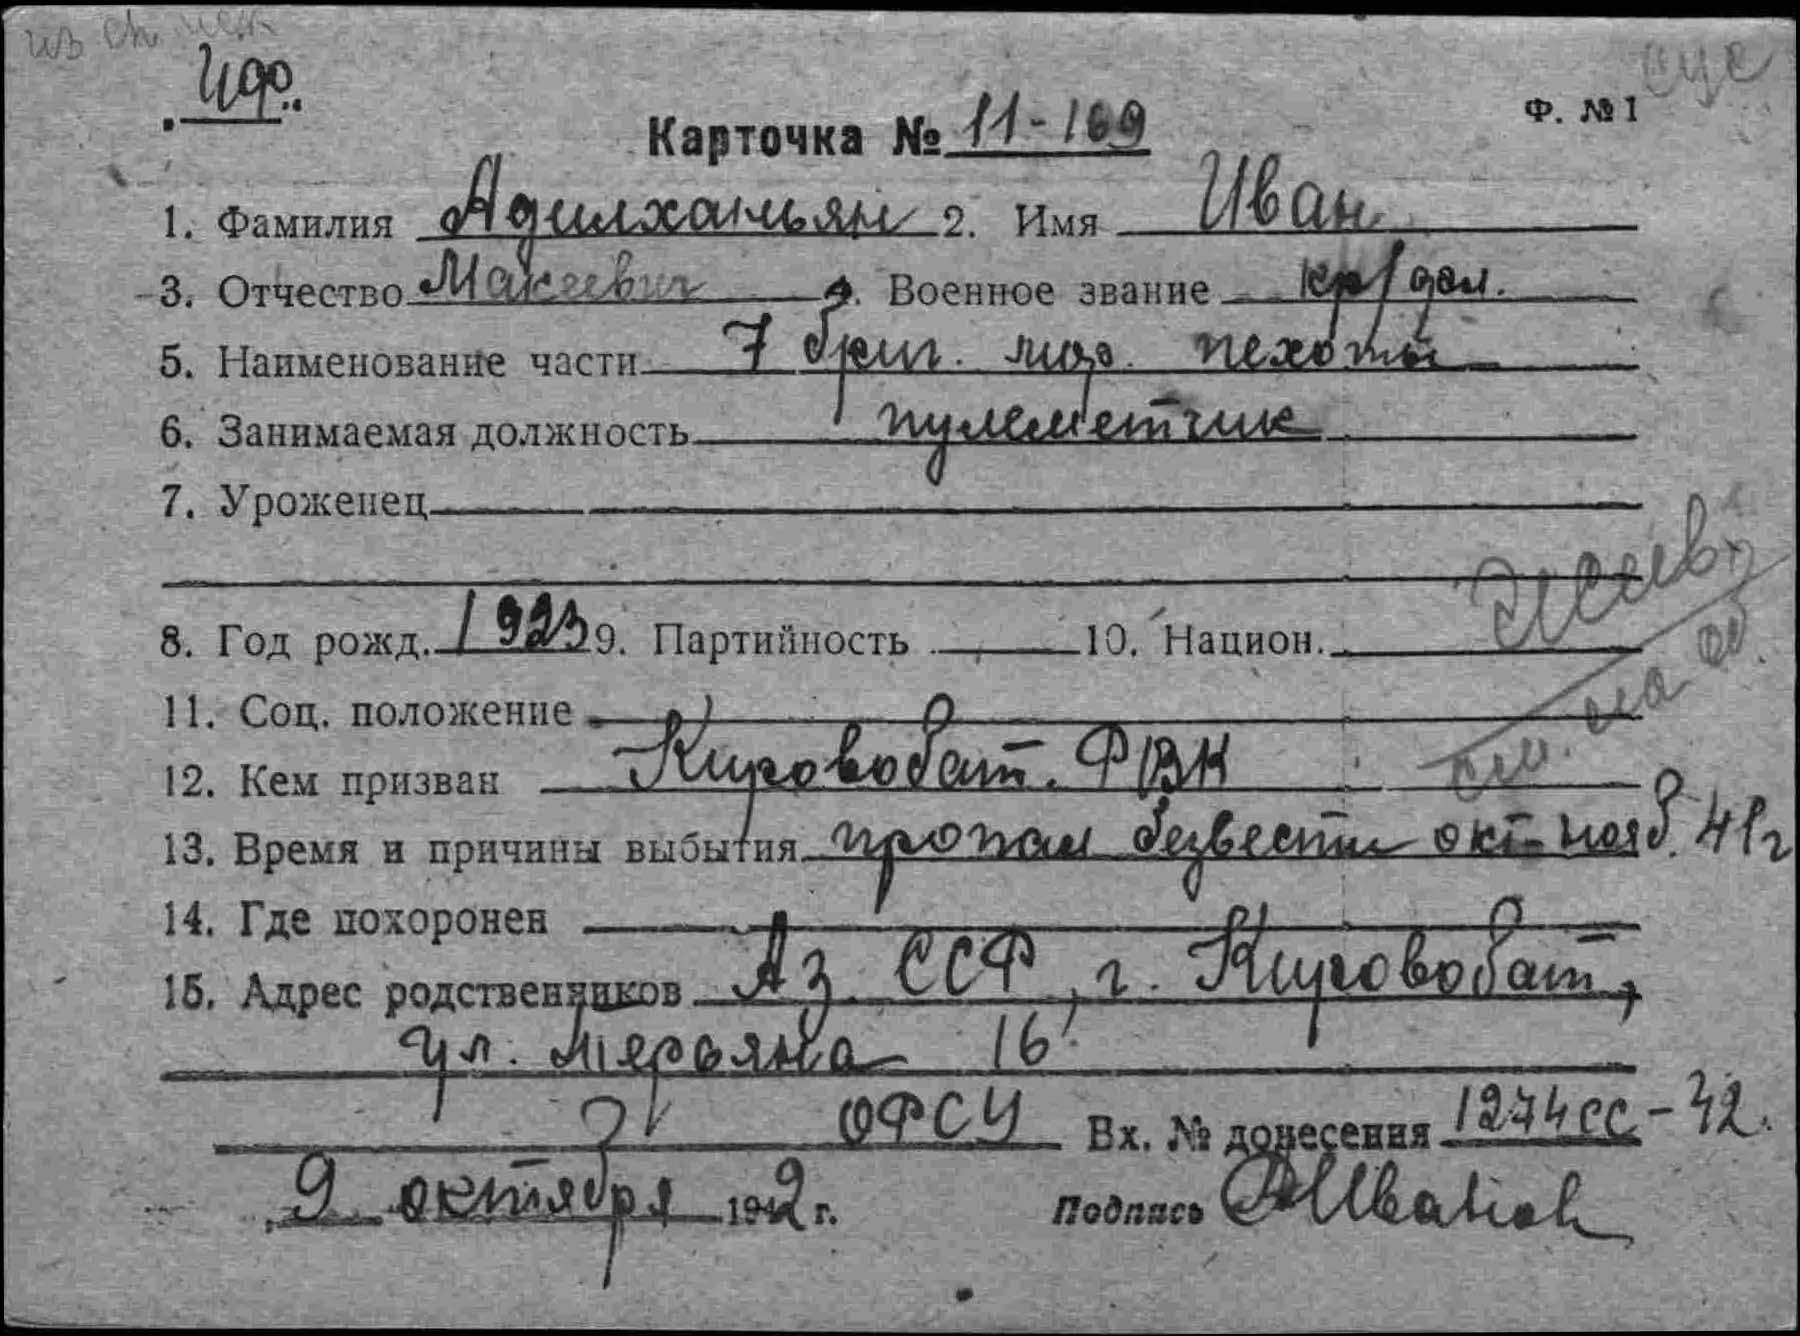 из сп. иск
Идр.
сус
Ф. №1
Карточка № 11-169
1. Фамилия Адилханьян 2. Имя Иван
3. Отчество Макеевич 4. Военное звание кр/арм.
5. Наименование части 7 бриг. мор. пехоты
6. Занимаемая должность пулеметчик
7. Уроженец
8. Год рожд. 1923 9. Партийность 10. Национ.
11. Соц. положение
12. Кем призван Кировобат. РВК
13. Время и причины выбытия пропал безвести окт-нояб. 41г
14. Где похоронен
15. Адрес родственников Аз. ССР, г. Кировобат,
ул. Мерьяна 16
ОРСУ Вх. № донесения 1274сс-42.
9 октября 1942 г. Подпись Иванов